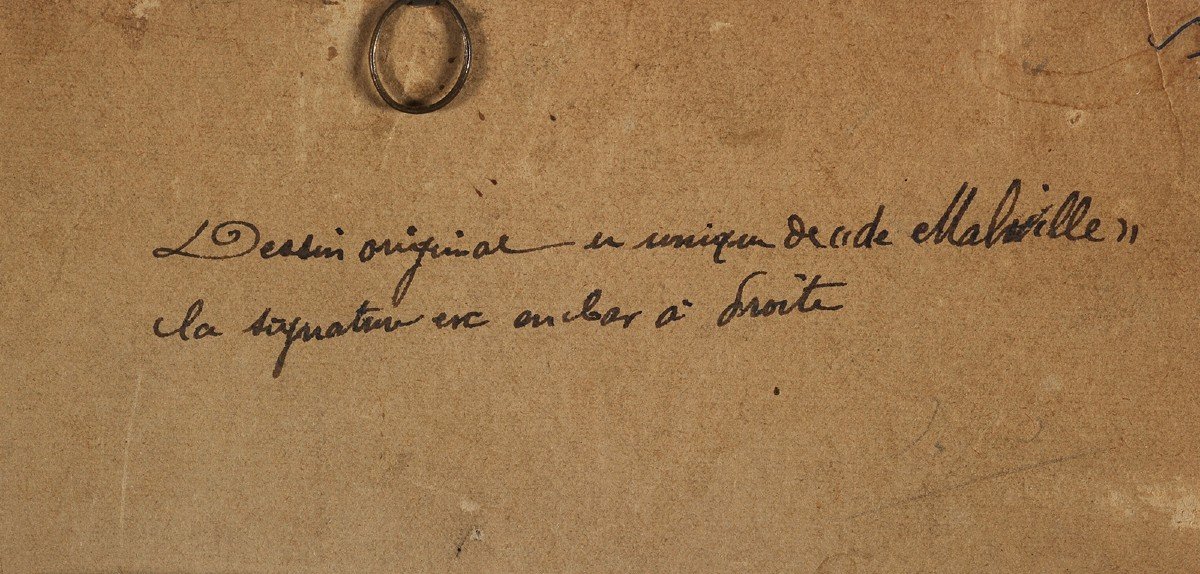 Dessin original et unique de «de Malville»
la signature est en bas à droite